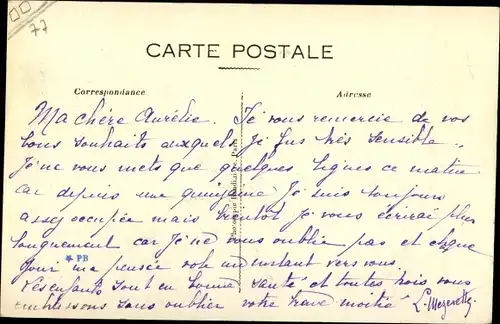 77
CARTE POSTALE
Correspondance
Adresse
Ma chère Aurélie. Je vous remercie de vos
bons souhaits auxquels j'ai fus très sensible.
Je ne vous mets que quelques lignes ce matin
car depuis une quinzaine je suis toujours
assez occupée mais bientôt je vous écrirai plus
longuement car je ne vous oublie pas et chaque
jour ma pensée vole un instant vers vous.
* PB
Vos enfants sont en bonne santé et toutes trois vous
embrassons sans oublier votre brave moitié